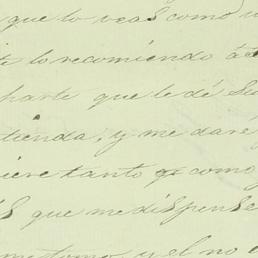 que lo veas como
te lo recomiendo á
parte que le dé Su
tienda, y me daré
iere tanto como
que me dispense
y el no